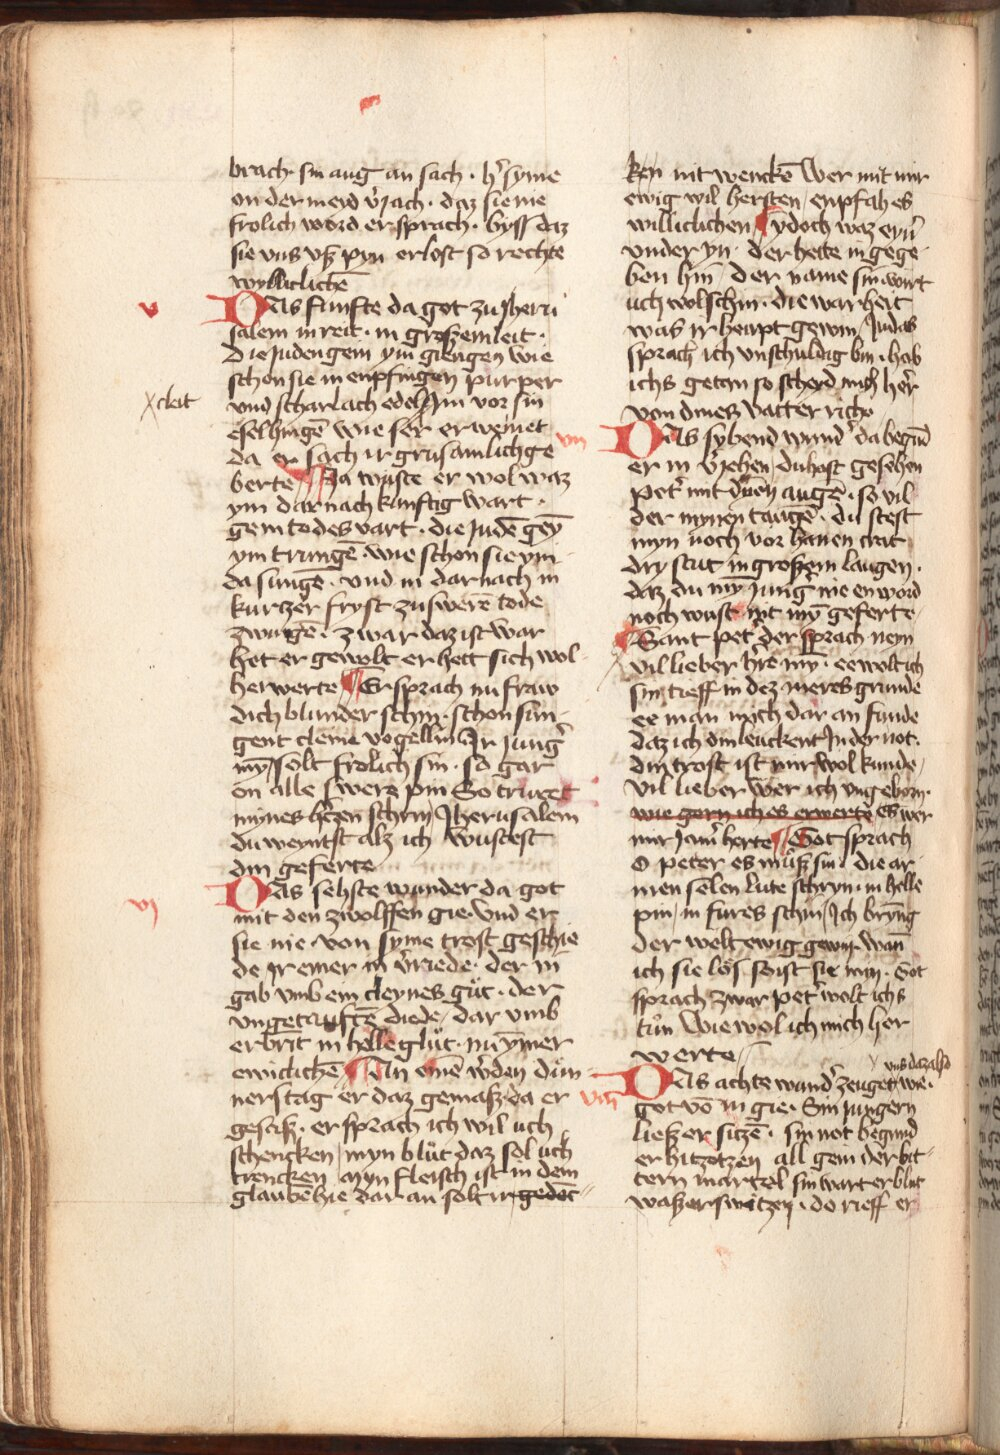 brach · sin aug an sach · hr̄ syme
on der meid v̄rjach · daz sie nie
frolich word er sprach · byss daz
sie vns vß pyn erlost so rechte
wylliclichē
v
DAs funfte da got zu Jheru
salem in reit · in großem leit ·
die Juden gein ym giengen wie
schon sie in enpfingen purper
xcleit
vnd scharlach edel Im vor sin
eselhingē wie ser er weinet
da er sach ir grusamlich ge
berte Da wuste er wol waz
ym dar nach kunftig wart ·
gein todes vart · die Judē geȳ
ym trungē wie schon sie ym
da sungē · vnd in dar nach in
kurtzer fryst zu swerē tode
zwungē · zwar daz ist war
het er gewolt er hett sich wol
her werte Er sprach nu fraw
dich blunder schin · schon sun
gent cleine vogellin Ir Jung̉
mȳ solt frolich sin · so gar
on alle swere pin So truret
mynes h̄czen schrin Jherusalem
du weyntst alz ich wustest
din geferte
vj
DAs sehste wunder da got
mit den zwolffen gie · Vnd er
sie nie · von syme trost geschie
de Ir einer in v̄riede · der in
gab vmb ein cleynes gůt · der
vngetaufte diede / dar vmb
er brit in helle glůt · nu ymmer
ewiclichē An einē w̄den dün
nerstag er daz gemasz da er
gesasz · er sprach ich wil uch
schencken / myn blůt daz sol uch
trencken / myn fleisch ist in dem
glaubē hie dar an solt ir gedēc
ken nit wenckē Wer mit mir
ewig wil hersten / enpfah es
williclichen / ydoch waz eyn̉
vnder yn · der hette in gege
ben hin der name sin wirt
uch wol schin · die warheit
was ir heupt gewin / Judas
sprach ich vnschuldig bin · hab
ichs getan so scheid mich her̉
von dines vatter riche
vij
DAs sybend wund̉ da begūd
er in v̄jehen / du hast gesehen
Pet̉ mit dinen augē · so vil
der mynen taugē · du stest
myn noch vor hanen crat
dry stat in großem laugen ·
daz du mȳ Jung̉ nie en word
noch wust nit mȳ geferte
Sant pet̉ der sprach nein
vil lieber h̄re mȳ · ee wolt ich
sin tieff in dez meres grunde
ee man mich dar an funde
daz ich din leuckent In der not ·
din trost ist mir wol kunde /
vil lieber wer ich vngeborn ·
wie gern ich es erwerte es wer
mir Jam̉ herte / Got sprach
O peter es můß sin · die ar
men selen lute schryn · in helle
pin / in fures schin / Ich bryng
der welt ewig gewin · wan̄
ich sie lös so ist sie min · Got
sprach zwar pet̉ wolt ichs
tůn Wie wol ich mich her
werte /
vns daz also
viij
DAs achte wund̉ zeuget wie ·
got vō in gie · Sin jungern
ließ er sitzē · sin not begund
er hitzotzen all gein der bit
tern martel sin wart er blut
waßer switzen · do rieff er